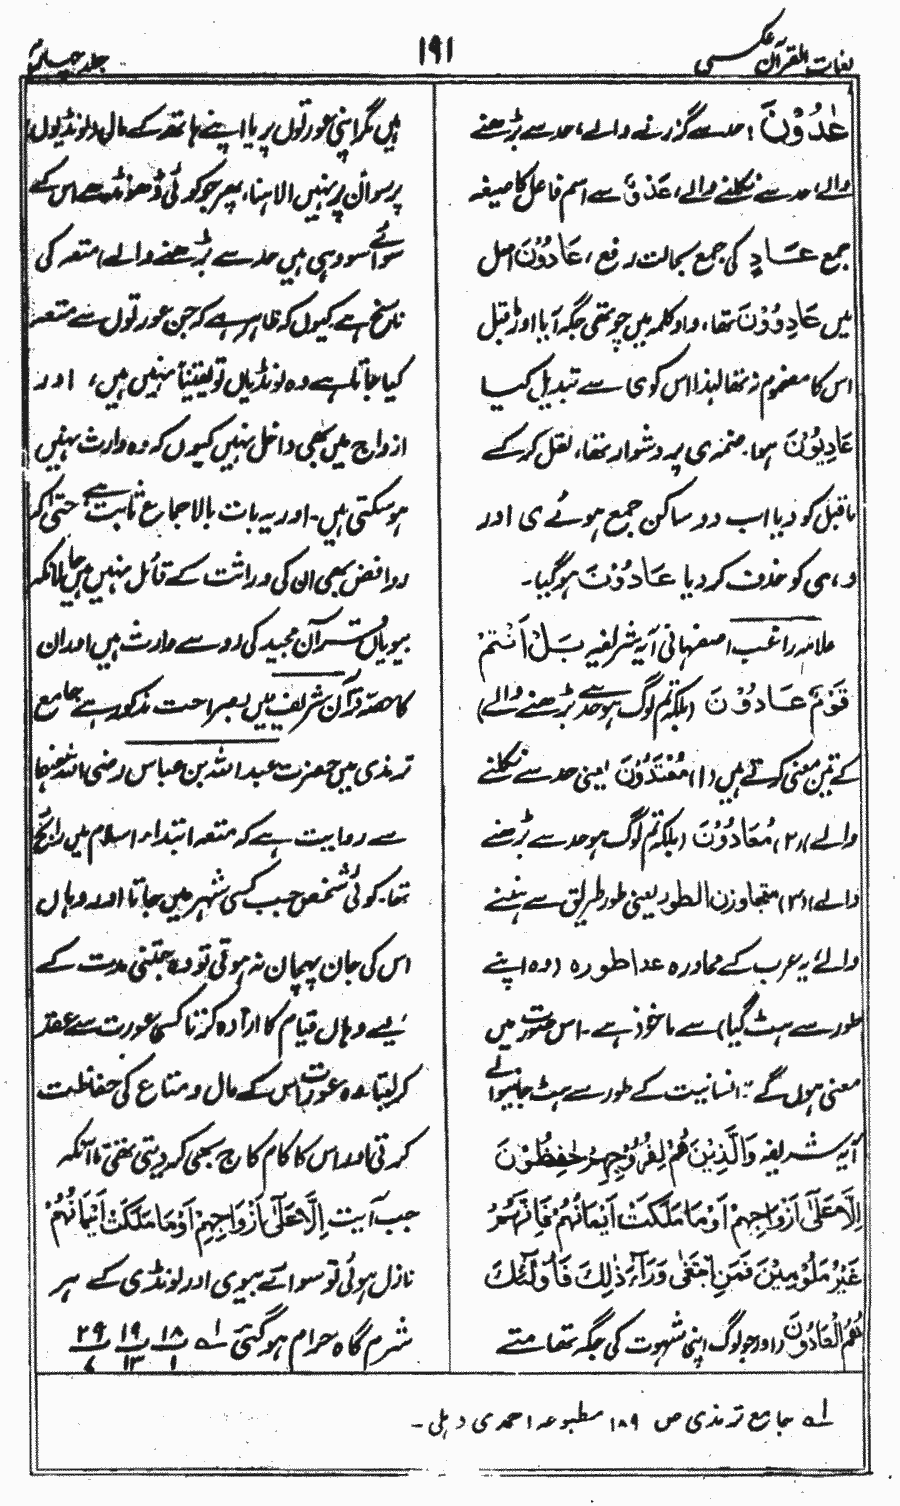 لغات القرآن عکسی
۱۹۱
جلد چہارم
عٰدُوْنَ: حد سے گزرنے والے، حد سے بڑھنے
والے، حد سے نکلنے والے، عَدْوٌ سے اسم فاعل کا صیغہ
جمع عَــادٍ کی جمع بحالت رفع، عَادُوْنَ اصل
میں عَادِوُوْنَ تھا، واو کلمہ میں چوتھی جگہ آیا اور قبل
اس کا مضموم نہ تھا لہذا اس کو ی سے تبدیل کیا
عَادِیُوْنَ ہوا۔ ضمہ ی پر دشوار تھا، نقل کر کے
ماقبل کو دیا اب دو ساکن جمع ہوئے ی اور
و، ی کو حذف کر دیا عَادُوْنَ ہوگیا۔
علامہ راغب اصفہانی آیہ شریفہ بَلْ اَنْتُمْ
قَوْمٌ عَادُوْنَ (بلکہ تم لوگ ہو حد سے بڑھنے والے)
کے تین معنی کرتے ہیں (۱) مُعْتَدُوْنَ یعنی حد سے نکلنے
والے (۲) مُعَادُوْنَ (بلکہ تم لوگ ہو حد سے بڑھنے
والے) (۳) متجاوزن الطور یعنی طور طریق سے ہٹنے
والے، یہ عرب کے محاورہ عدا طورہ (وہ اپنے
طور سے ہٹ گیا) سے ماخوذ ہے۔ اس صورت میں
معنی ہوں گے: انسانیت کے طور سے ہٹ جانیوالے
آیہ شریفہ وَالَّذِیْنَ هُمْ لِفُرُوْجِهِمْ حٰفِظُوْنَ
اِلَّا عَلٰٓی اَزْوَاجِهِمْ اَوْ مَا مَلَكَتْ اَیْمَانُهُمْ فَاِنَّهُمْ
غَیْرُ مَلُوْمِیْنَ فَمَنِ ابْتَغٰی وَرَآءَ ذٰلِكَ فَاُولٰٓئِكَ
هُمُ الْعَادُوْنَ (اور جو لوگ اپنی شہوت کی جگہ تھامتے
ہیں مگر اپنی عورتوں پر یا اپنے ہاتھ کے مال (لونڈیوں)
پر سو اُن پر نہیں الاہنا، پھر جو کوئی ڈھونڈھے اس کے
سوائے سو وہی ہیں حد سے بڑھنے والے) متعہ کی
ناسخ ہے کیوں کہ ظاہر ہے کہ جن عورتوں سے متعہ
کیا جاتا ہے وہ لونڈیاں تو یقیناً نہیں ہیں، اور
ازواج میں بھی داخل نہیں کیوں کہ وہ وارث نہیں
ہو سکتی ہیں۔ اور یہ بات بالاجماع ثابت ہے حتیٰ کہ
روافض بھی ان کی وراثت کے قائل نہیں ہیں حالانکہ
بیویاں قرآن مجید کی رو سے وارث ہیں اور ان
کا حصہ قرآن شریف میں بصراحت مذکور ہے جامع
ترمذی میں حضرت عبد اللہ بن عباس رضی اللہ عنہما
سے روایت ہے کہ متعہ ابتداء اسلام میں رائج
تھا۔ کوئی شخص جب کسی شہر میں جاتا اور وہاں
اس کی جان پہچان نہ ہوتی تو وہ جتنی مدت کے
لیے وہاں قیام کا ارادہ کرتا کسی عورت سے عقد
کر لیتا وہ عورت اس کے مال و متاع کی حفاظت
کرتی اور اس کا کام کاج بھی کر دیتی تھی تا آنکہ
جب آیت اِلَّا عَلٰٓی اَزْوَاجِهِمْ اَوْ مَا مَلَكَتْ اَیْمَانُهُمْ
نازل ہوئی تو سوائے بیوی اور لونڈی کے ہر
شرم گاہ حرام ہوگئی لہ ۱۸/۱ ۱۹/۱۳ ۲۹/۷
لہ جامع ترمذی ص ۱۸۹ مطبوعہ احمدی دہلی۔